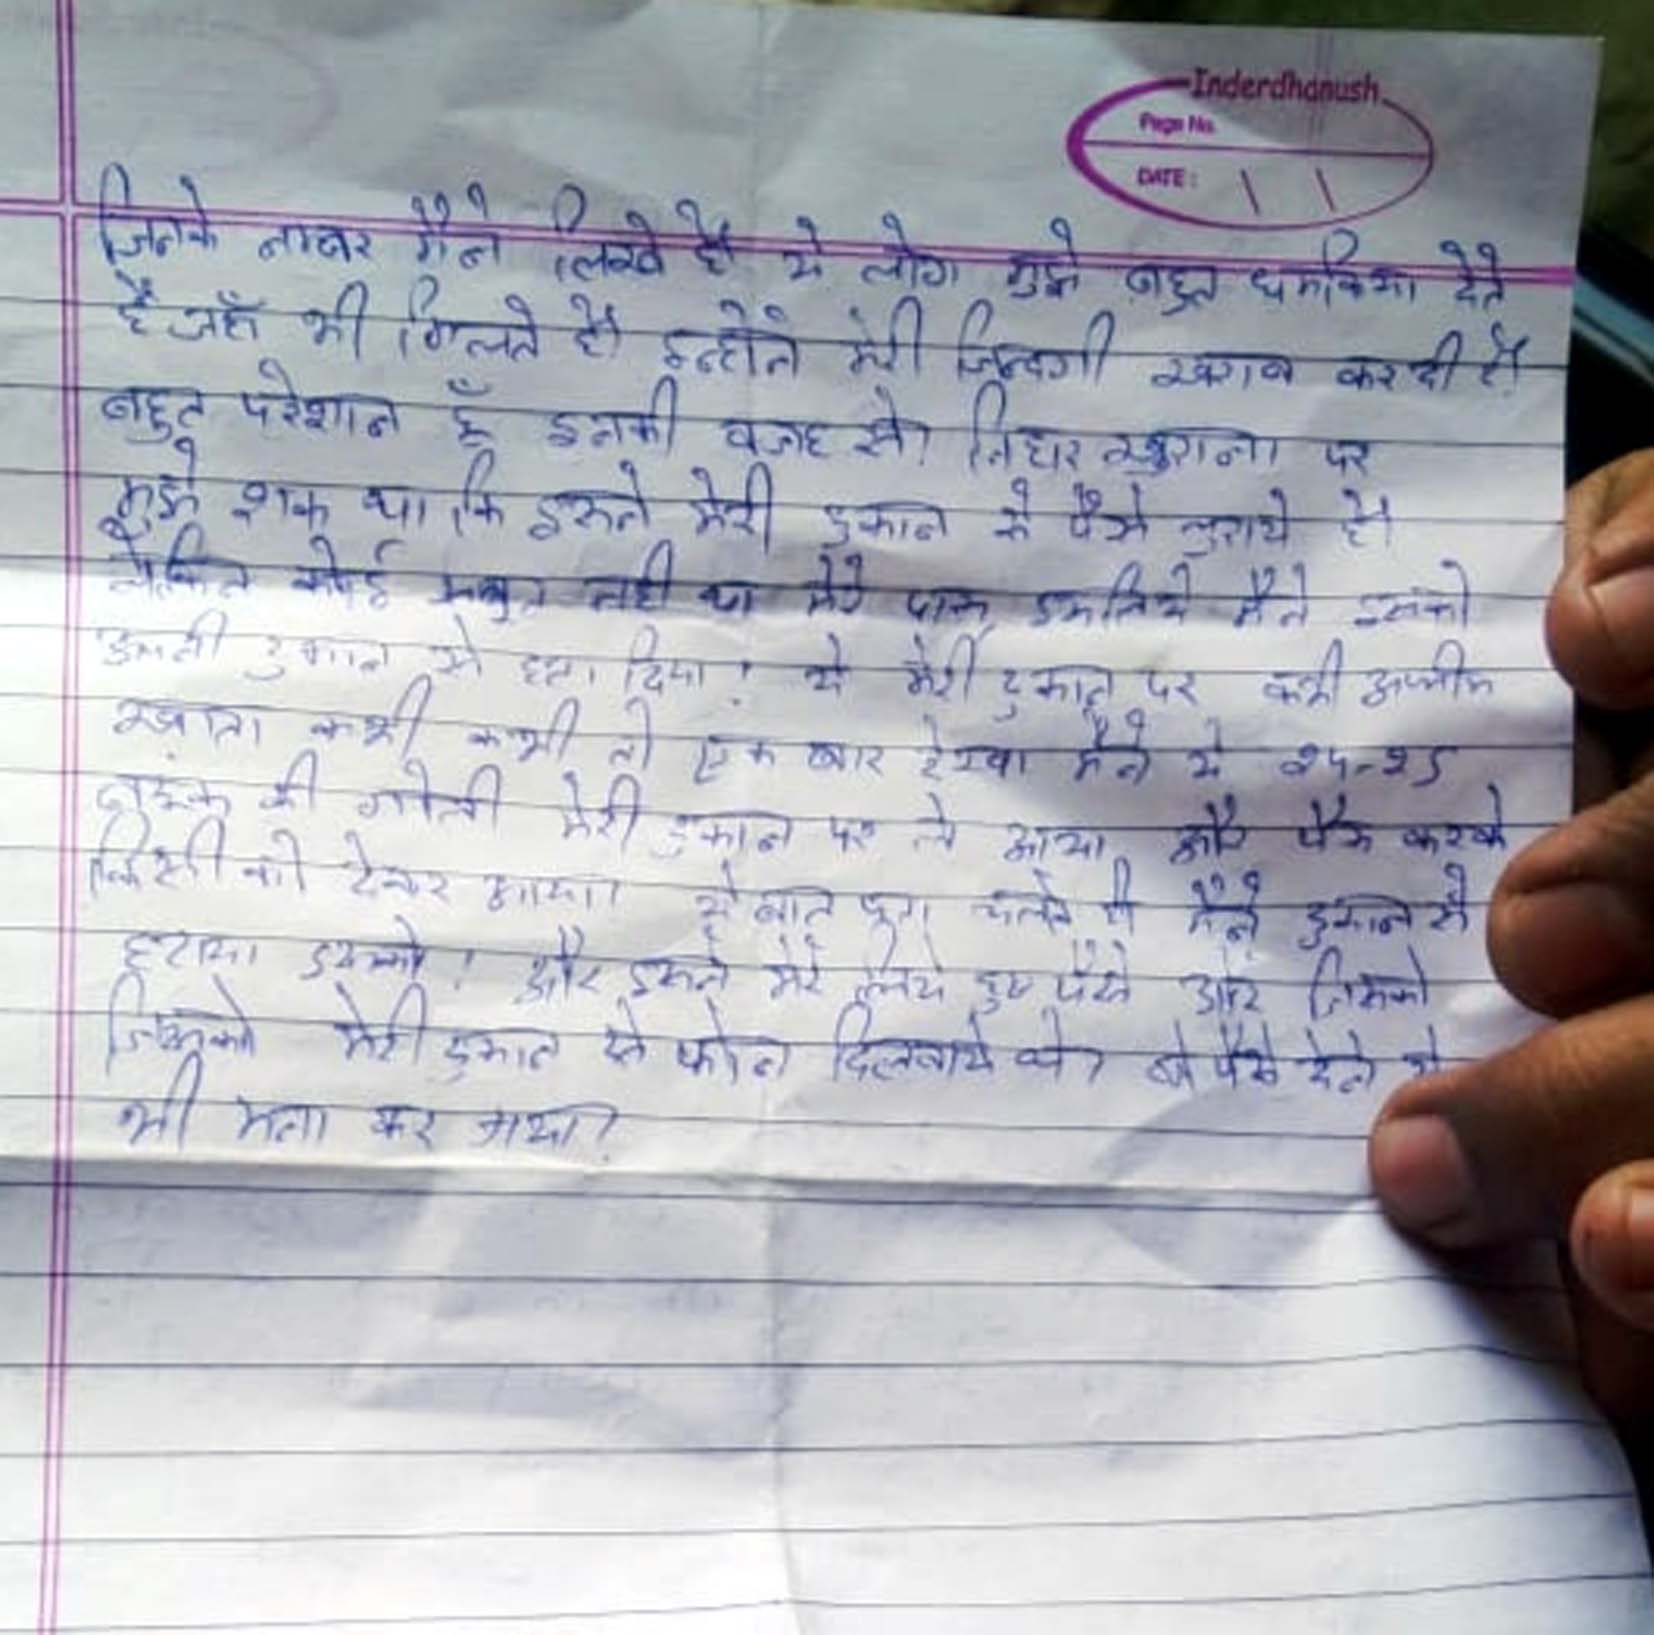 Inderdhanush
Page No.
DATE:
जिनके नाम्बर मैंने लिखे है। ये लोग मुझे बहुत धमकिया देते
है जहाँ भी मिलते है। इन्होंने मेरी जिन्दगी खराब कर दी है।
बहुत परेशान हूँ इनकी वजह से। खुराना पर
मुझे शक था कि इसने मेरी दुकान से पैसे चुराये है।
लेकिन कोई सबुत नही था मेरे पास, इसलिये मैंने इसको
अपनी दुकान से हटा दिया। ये मेरी दुकान पर कभी अफीम
खाता कभी कभी तो एक बार देखा मैंने ये
की गोली मेरी दुकान पर ले आया और पैक करके
किसी को देकर आया। ये बात पता चलते ही मैंने दुकान से
हटाया इसको। और इसने मेरे लिये हुए पैसे और जिसको
जिसको मेरी दुकान से फोन दिलवाये थे। वो पैसे देने से
भी मना कर गया।